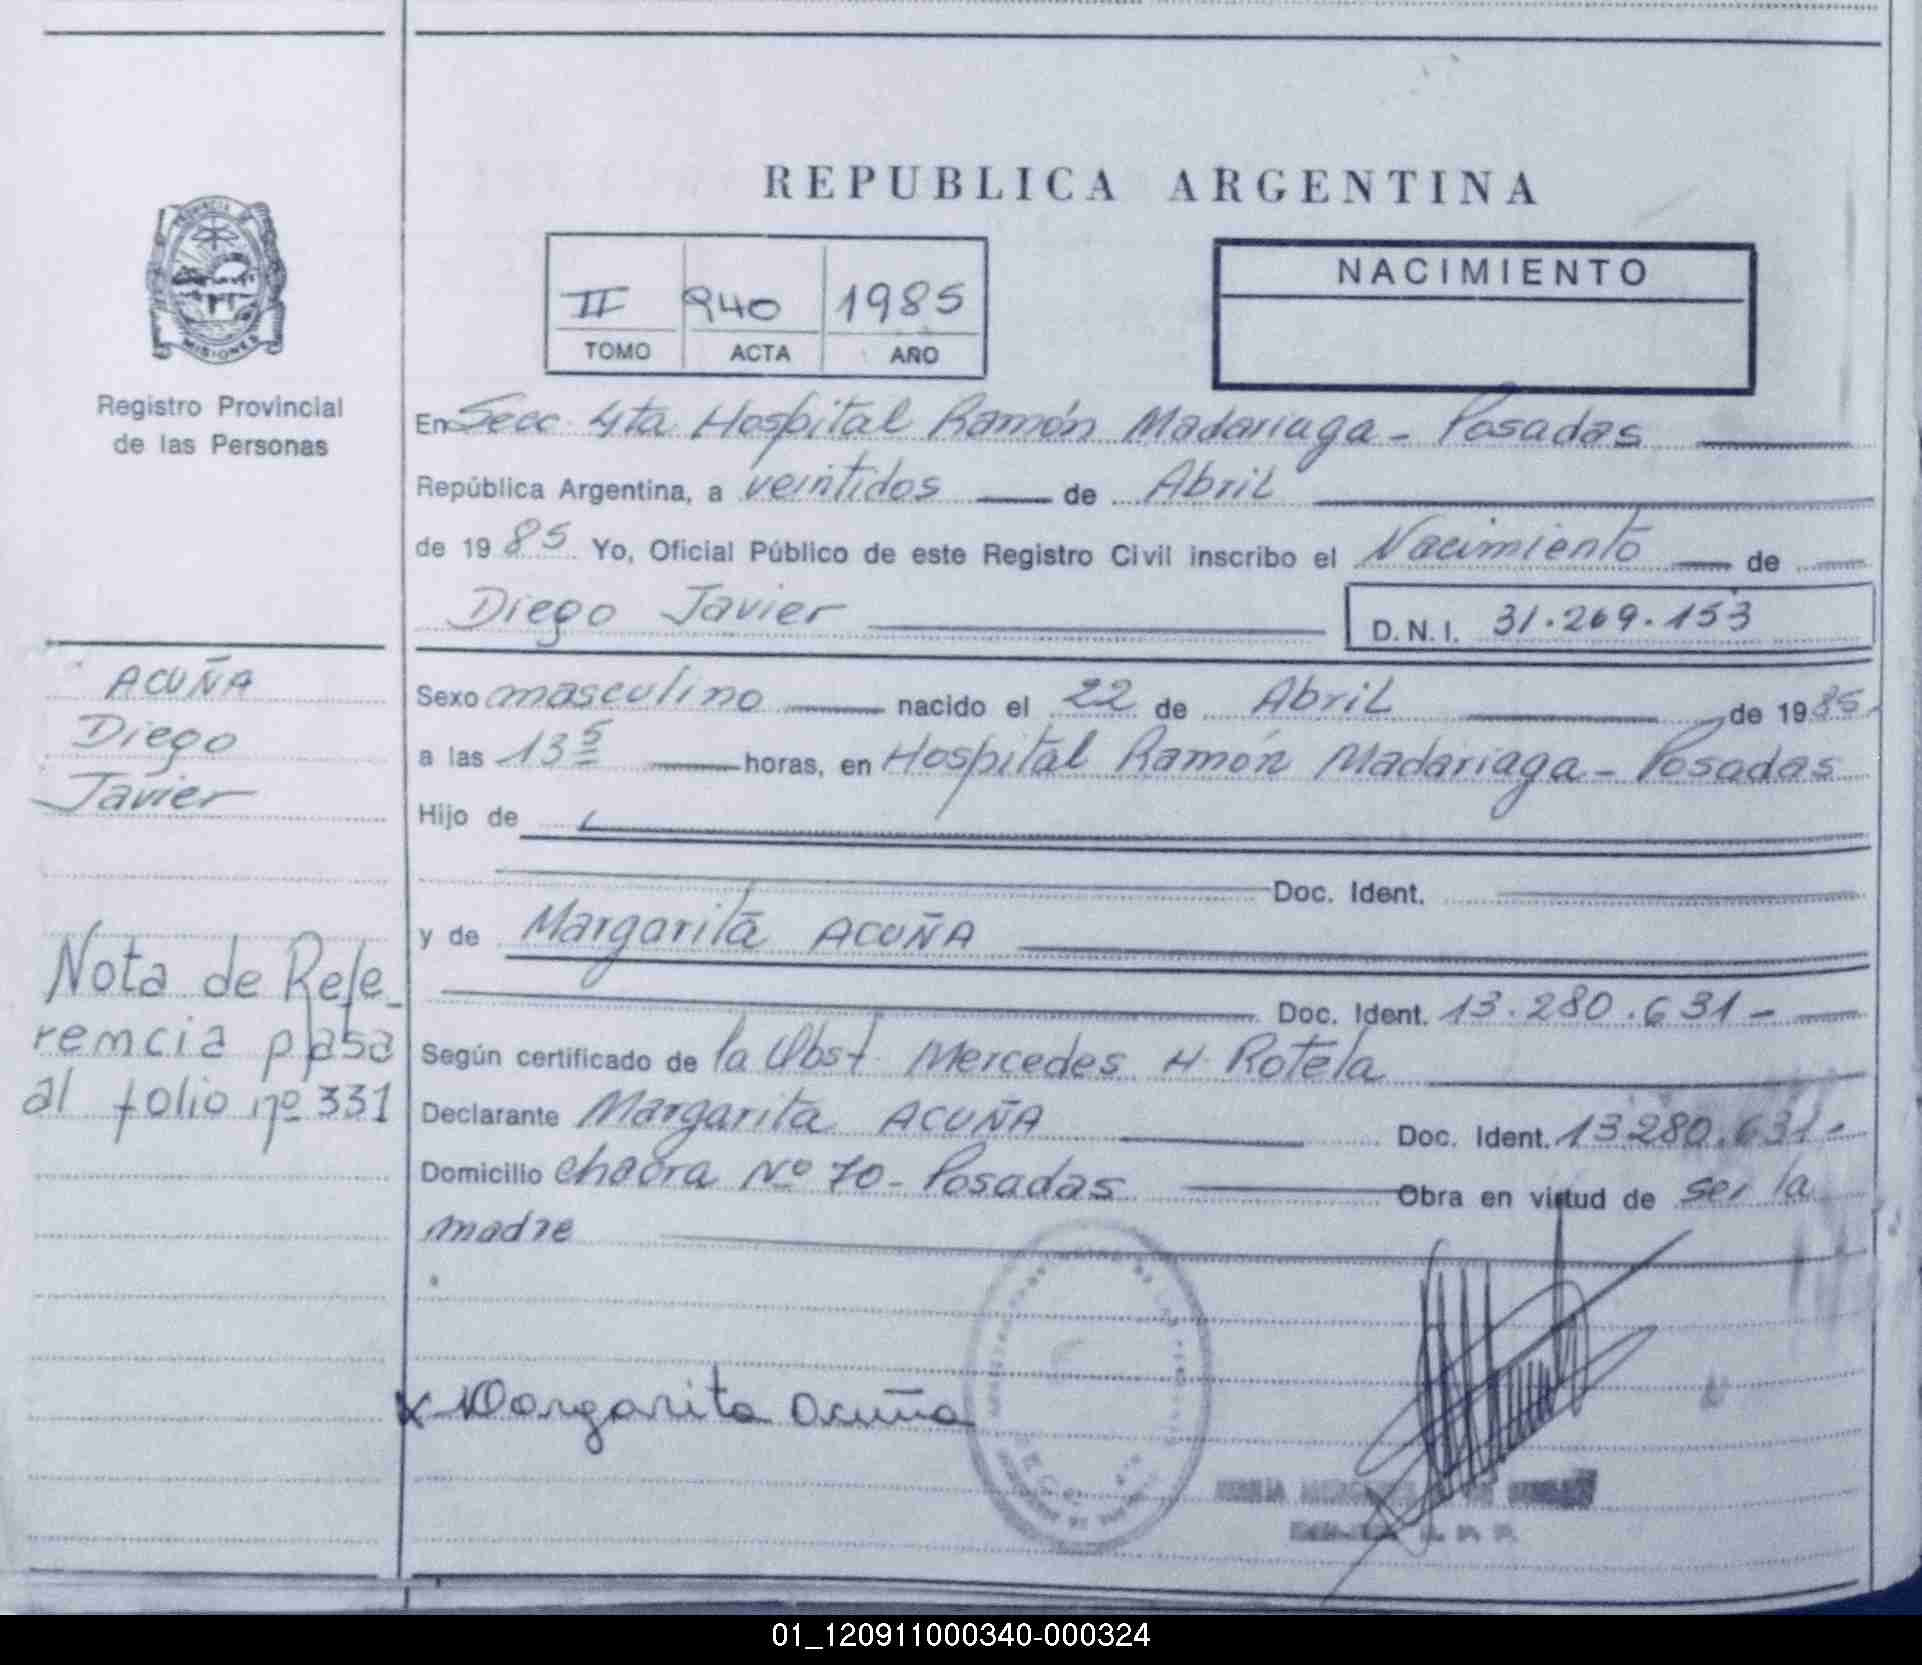 REPUBLICA ARGENTINA
PROVINCIA DE
MISIONES
Registro Provincial
de las Personas
II 940 1985
TOMO ACTA AÑO
NACIMIENTO
En Secc. 4ta Hospital Ramón Madariaga - Posadas
República Argentina, a veintidos de Abril
de 1985 Yo, Oficial Público de este Registro Civil inscribo el Nacimiento de
Diego Javier D.N.I. 31.269.153
ACUÑA
Diego
Javier
Sexo masculino nacido el 22 de Abril de 1985.
a las 13 5 horas, en Hospital Ramón Madariaga - Posadas
Hijo de
Doc. Ident.
y de Margarita ACUÑA
Doc. Ident. 13.280.631-
Nota de Refe-
rencia pasa
al folio nº 331
Según certificado de la Obst. Mercedes H. Rotela
Declarante Margarita ACUÑA Doc. Ident. 13.280.631-
Domicilio chacra Nº 70 - Posadas Obra en virtud de ser la
madre
x Margarita Acuña
01_120911000340-000324